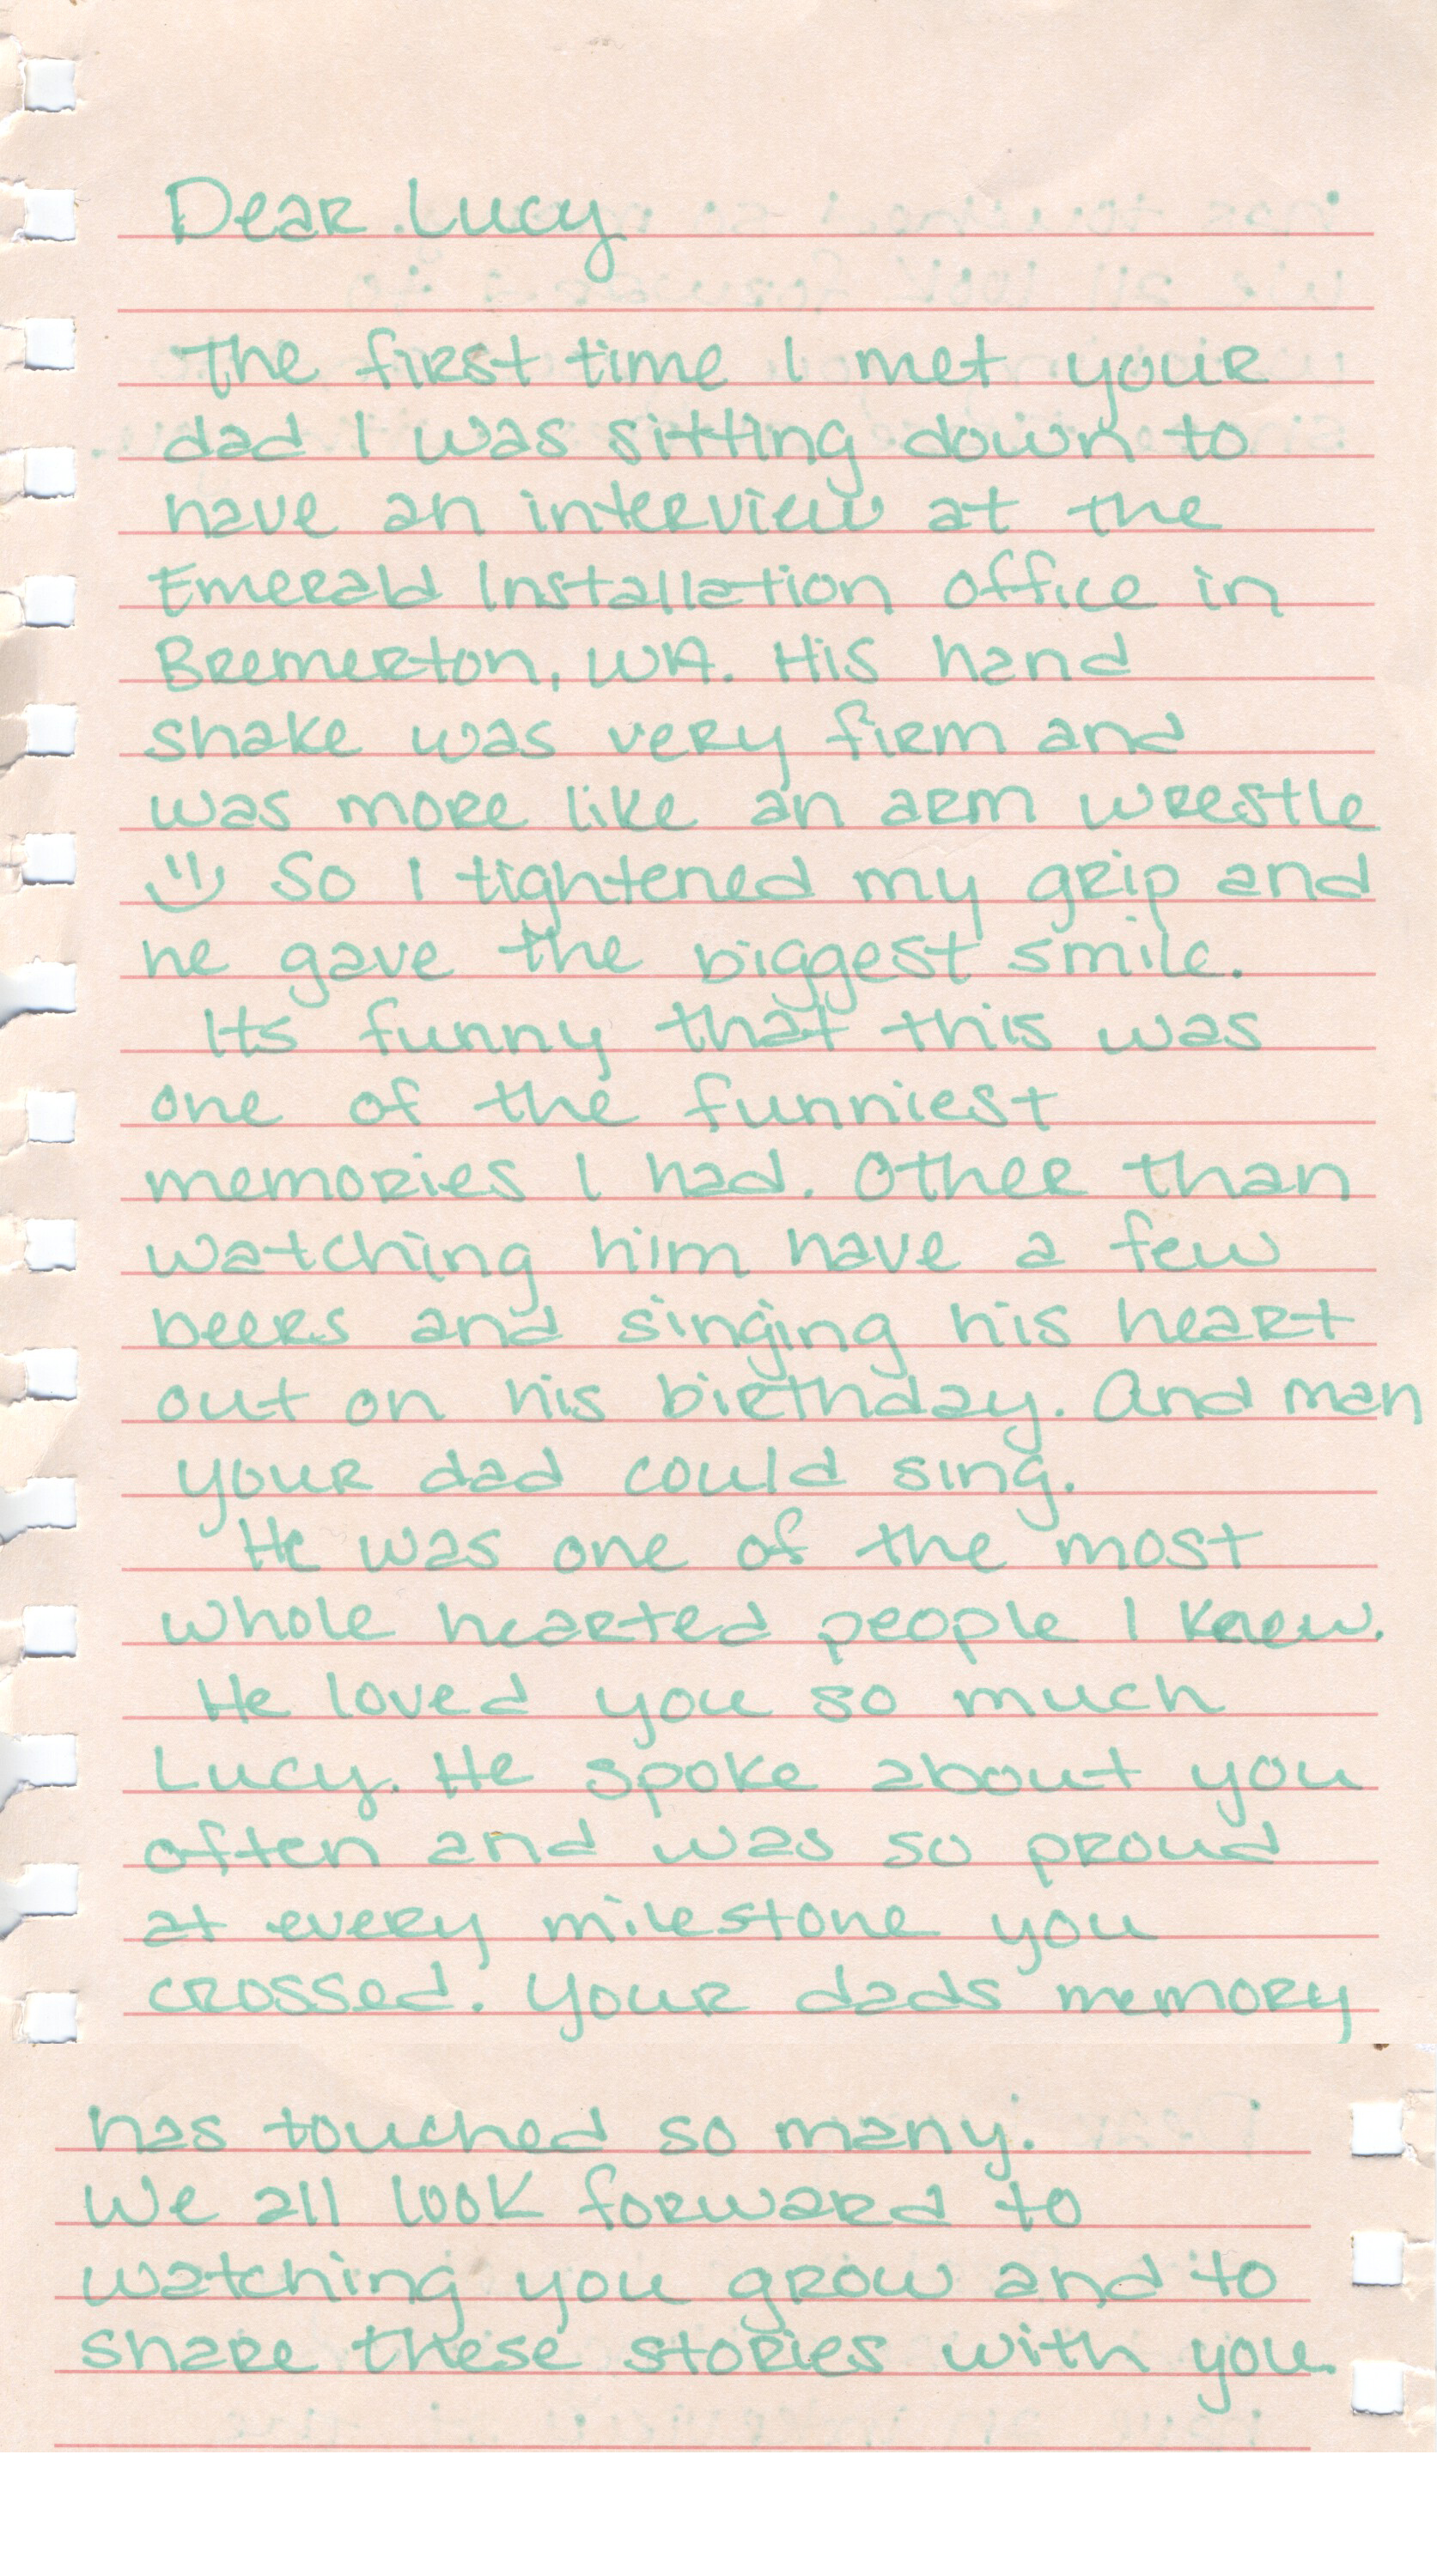 Dear Lucy
The first time I met your
dad I was sitting down to
have an interview at the
Emerald Installation office in
Bremerton, WA. His hand
shake was very firm and
was more like an arm wrestle
So I tightened my grip and
he gave the biggest smile.
Its funny that this was
one of the funniest
memories I had. Other than
watching him have a few
beers and singing his heart
out on his birthday. And man
your dad could sing.
He was one of the most
whole hearted people I knew.
He loved you so much
Lucy. He spoke about you
often and was so proud
at every milestone you
crossed. Your dads memory
has touched so many.
We all look forward to
watching you grow and to
share these stories with you.